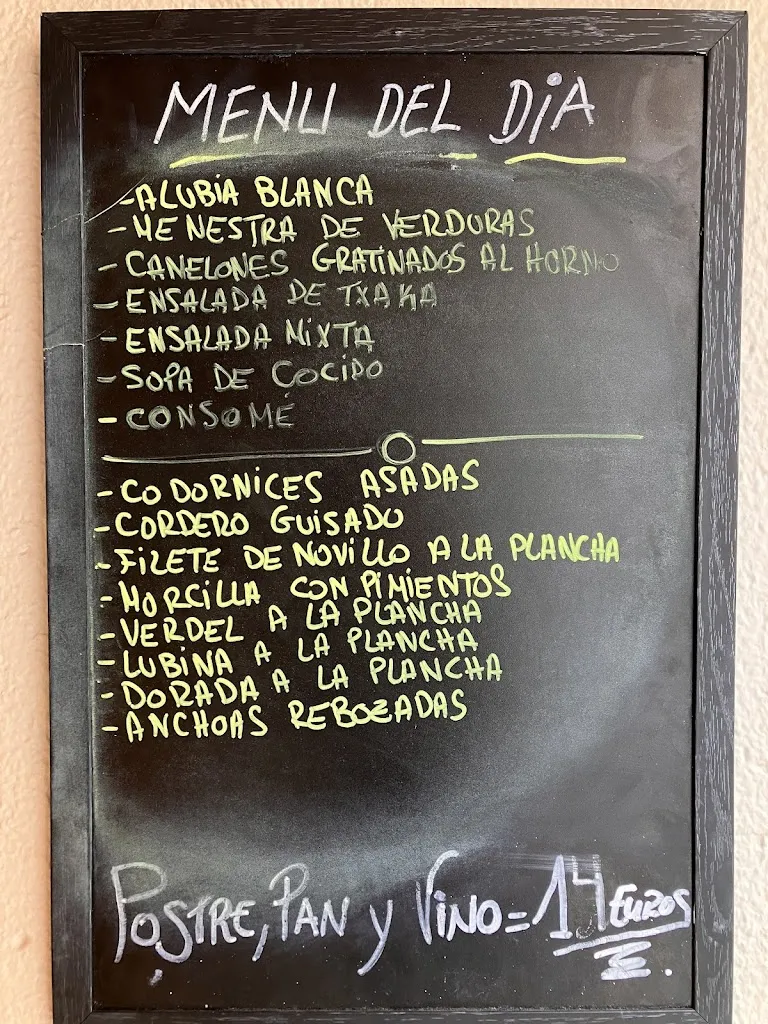 MENU DEL DiA
-ALUBiA BLANCA
-MENESTRA DE VERDURAS
-CANELONES GRATiNADOS AL HORNO
-ENSALADA DE TXAKA
-ENSALADA MiXTA
-SOPA DE COCIDO
-CONSOMÉ
-CODORNiCES ASADAS
-CORDERO GUiSADO
-FiLETE DE NOViLLO A LA PLANCHA
-MORCiLLA CON PiMiENTOS
-VERDEL A LA PLANCHA
-LUBiNA A LA PLANCHA
-DORADA A LA PLANCHA
-ANCHOAS REBOZADAS
POSTRE, PAN y ViNO = 14 EUROS.